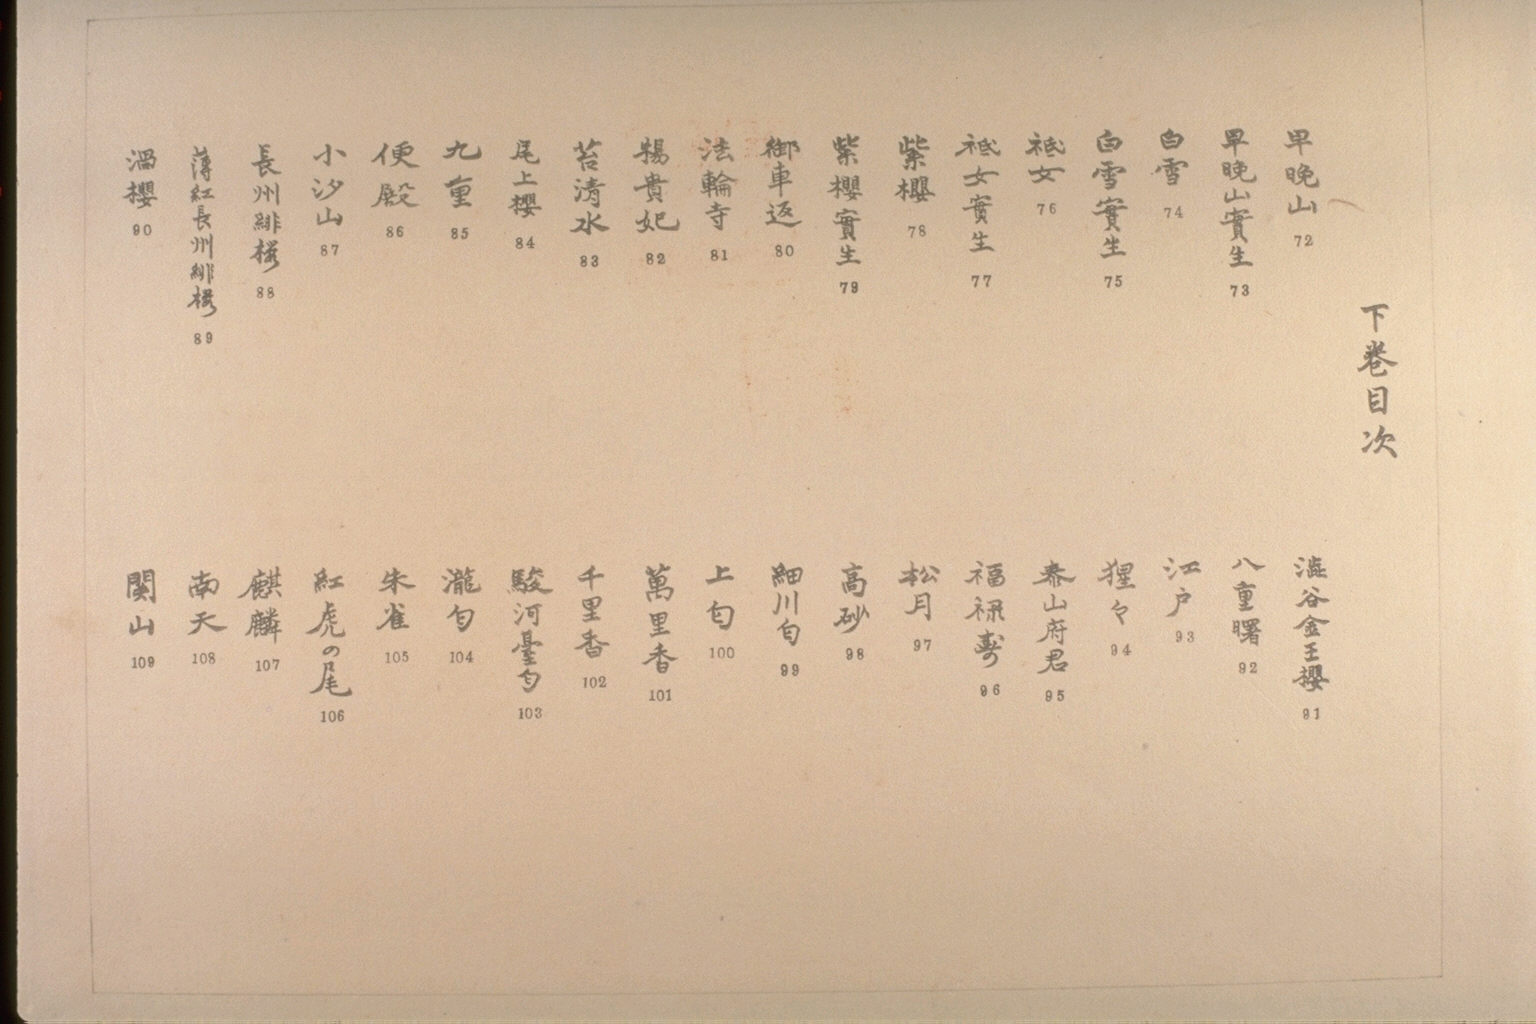 下巻目次
早晩山 72
早晩山實生 73
白雪 74
白雪實生 75
祗女 76
祗女實生 77
紫櫻 78
紫櫻實生 79
御車返 80
法輪寺 81
楊貴妃 82
苔清水 83
尾上櫻 84
九重 85
便殿 86
小汐山 87
長州緋桜 88
薄紅長州緋桜 89
溫櫻 90
澁谷金王櫻 91
八重曙 92
江戸 93
猩々 94
泰山府君 95
福禄寿 96
松月 97
高砂 98
細川匂 99
上匂 100
萬里香 101
千里香 102
駿河臺匂 103
瀧匂 104
朱雀 105
紅虎の尾 106
麒麟 107
南天 108
関山 109